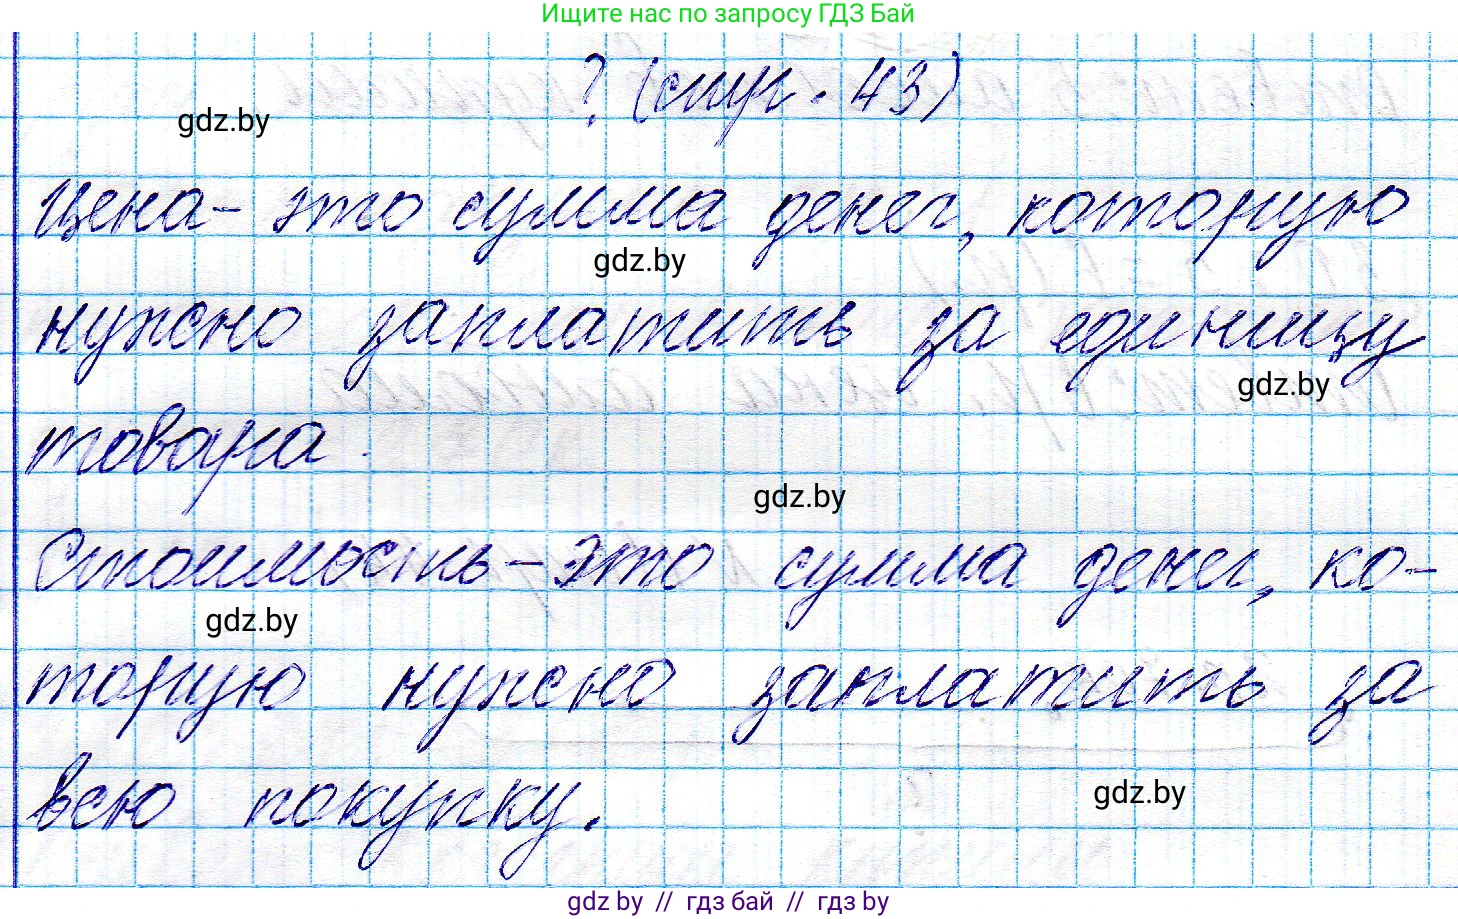 Ищите нас по запросу ГДЗ Бай
? (стр. 43)
gdz.by
Цена - это сумма денег, которую
gdz.by
нужно заплатить за единицу
gdz.by
товара.
gdz.by
Стоимость - это сумма денег, ко-
gdz.by
торую нужно заплатить за
всю покупку.
gdz.by
gdz by // гдз бай // гдз by